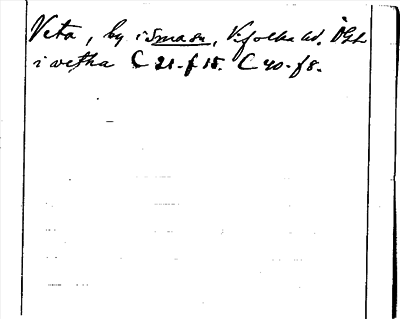 Veta, by i Småsn, V:folka hd. ÖGtl
i vetha C 21. f 15. C 40. f 8.